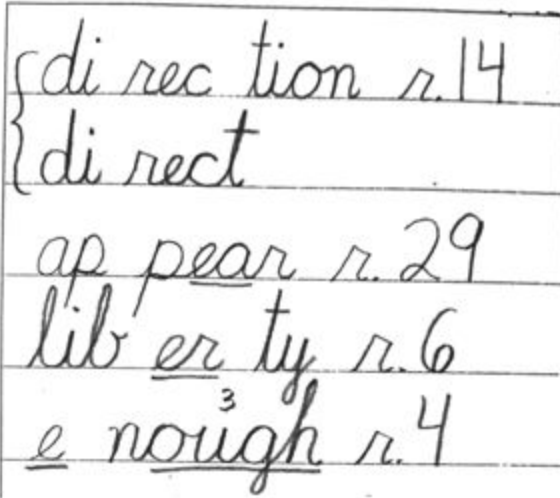 di rec tion r. 14
di rect
ap pear r. 29
lib er ty r. 6
e nough³ r. 4